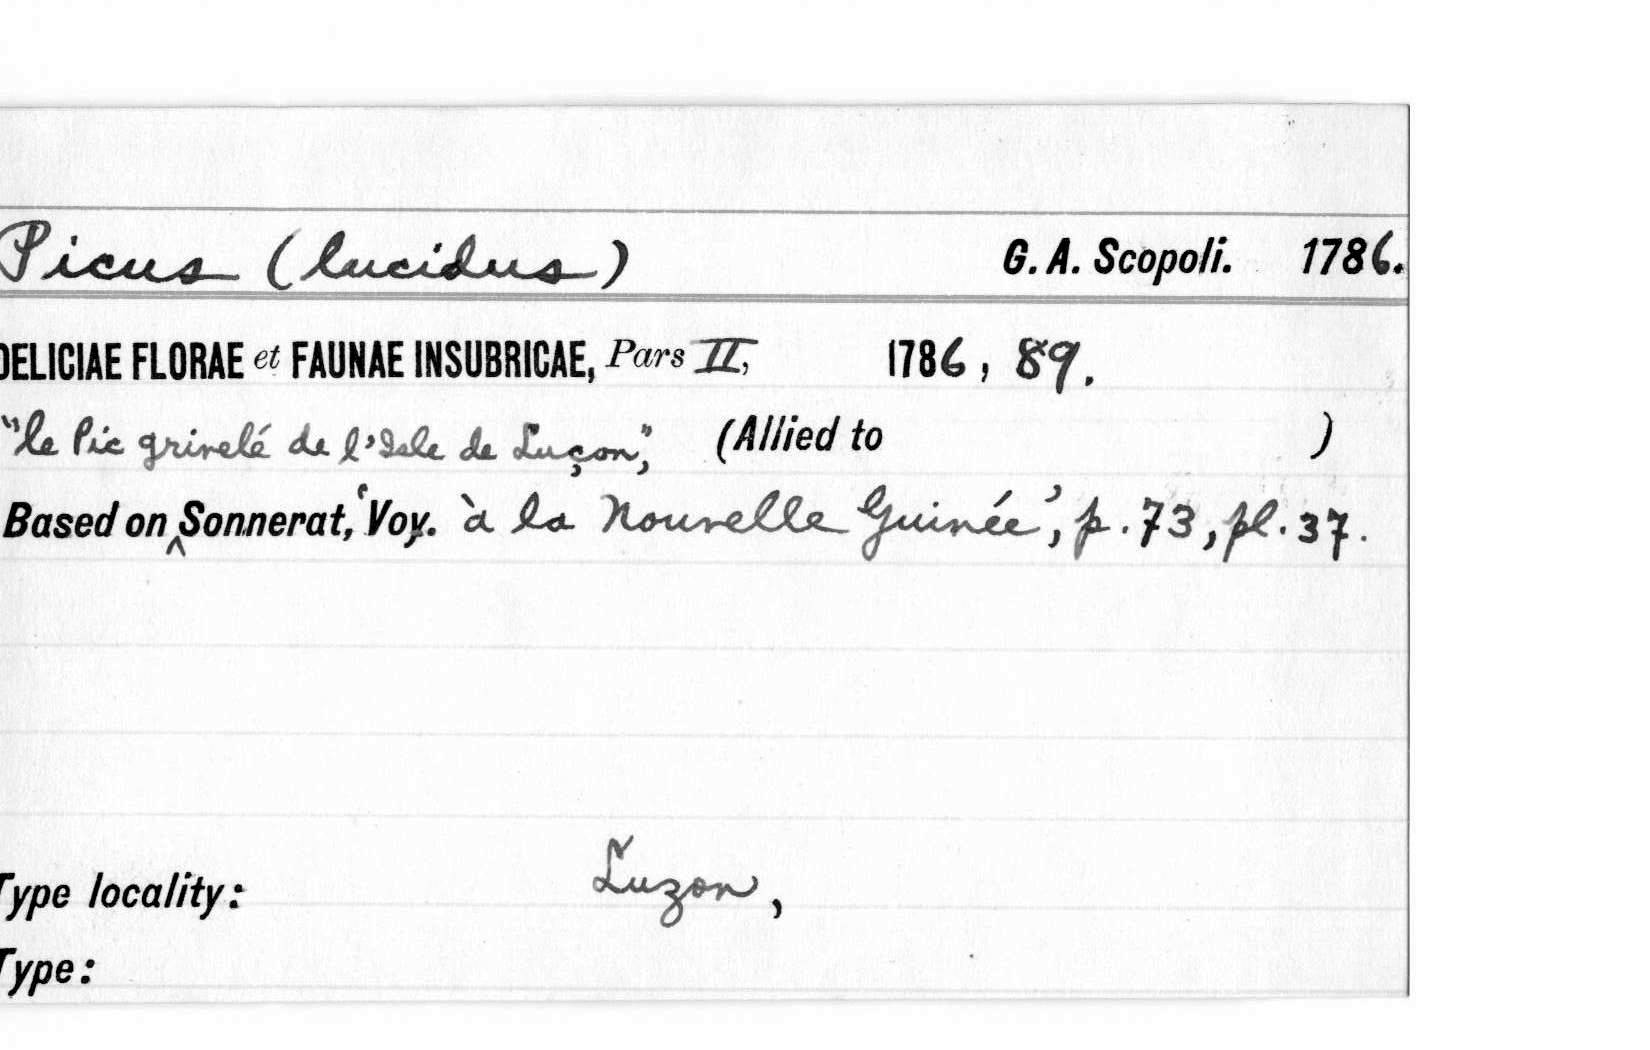 Picus (lucidus) G. A. Scopoli. 1786.
DELICIAE FLORAE et FAUNAE INSUBRICAE, Pars II, 1786, 89.
"le Pic grivelé de l'Isle de Luçon", (Allied to )
Based on ‸ Sonnerat, 'Voy. à la Nouvelle Guinée', p. 73, pl. 37.
Luzon,
Type locality:
Type: